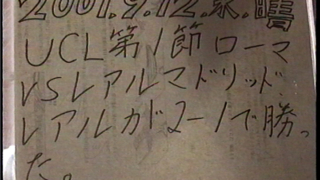 2001.9.12.水.晴
UCL第1節ローマ
VSレアルマドリッド
レアルが2-1で勝っ
た。